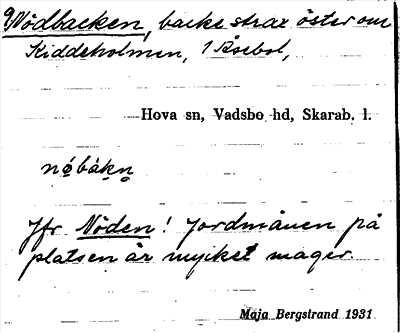 Nödbacken, backe strax öster om
Kiddeholmen, 1 Åsebol,
Hova sn, Vadsbo hd, Skarab. l.
nö̀bákn̥
Jfr Nöden! Jordmånen på
platsen är mycket mager.
Maja Bergstrand 1931